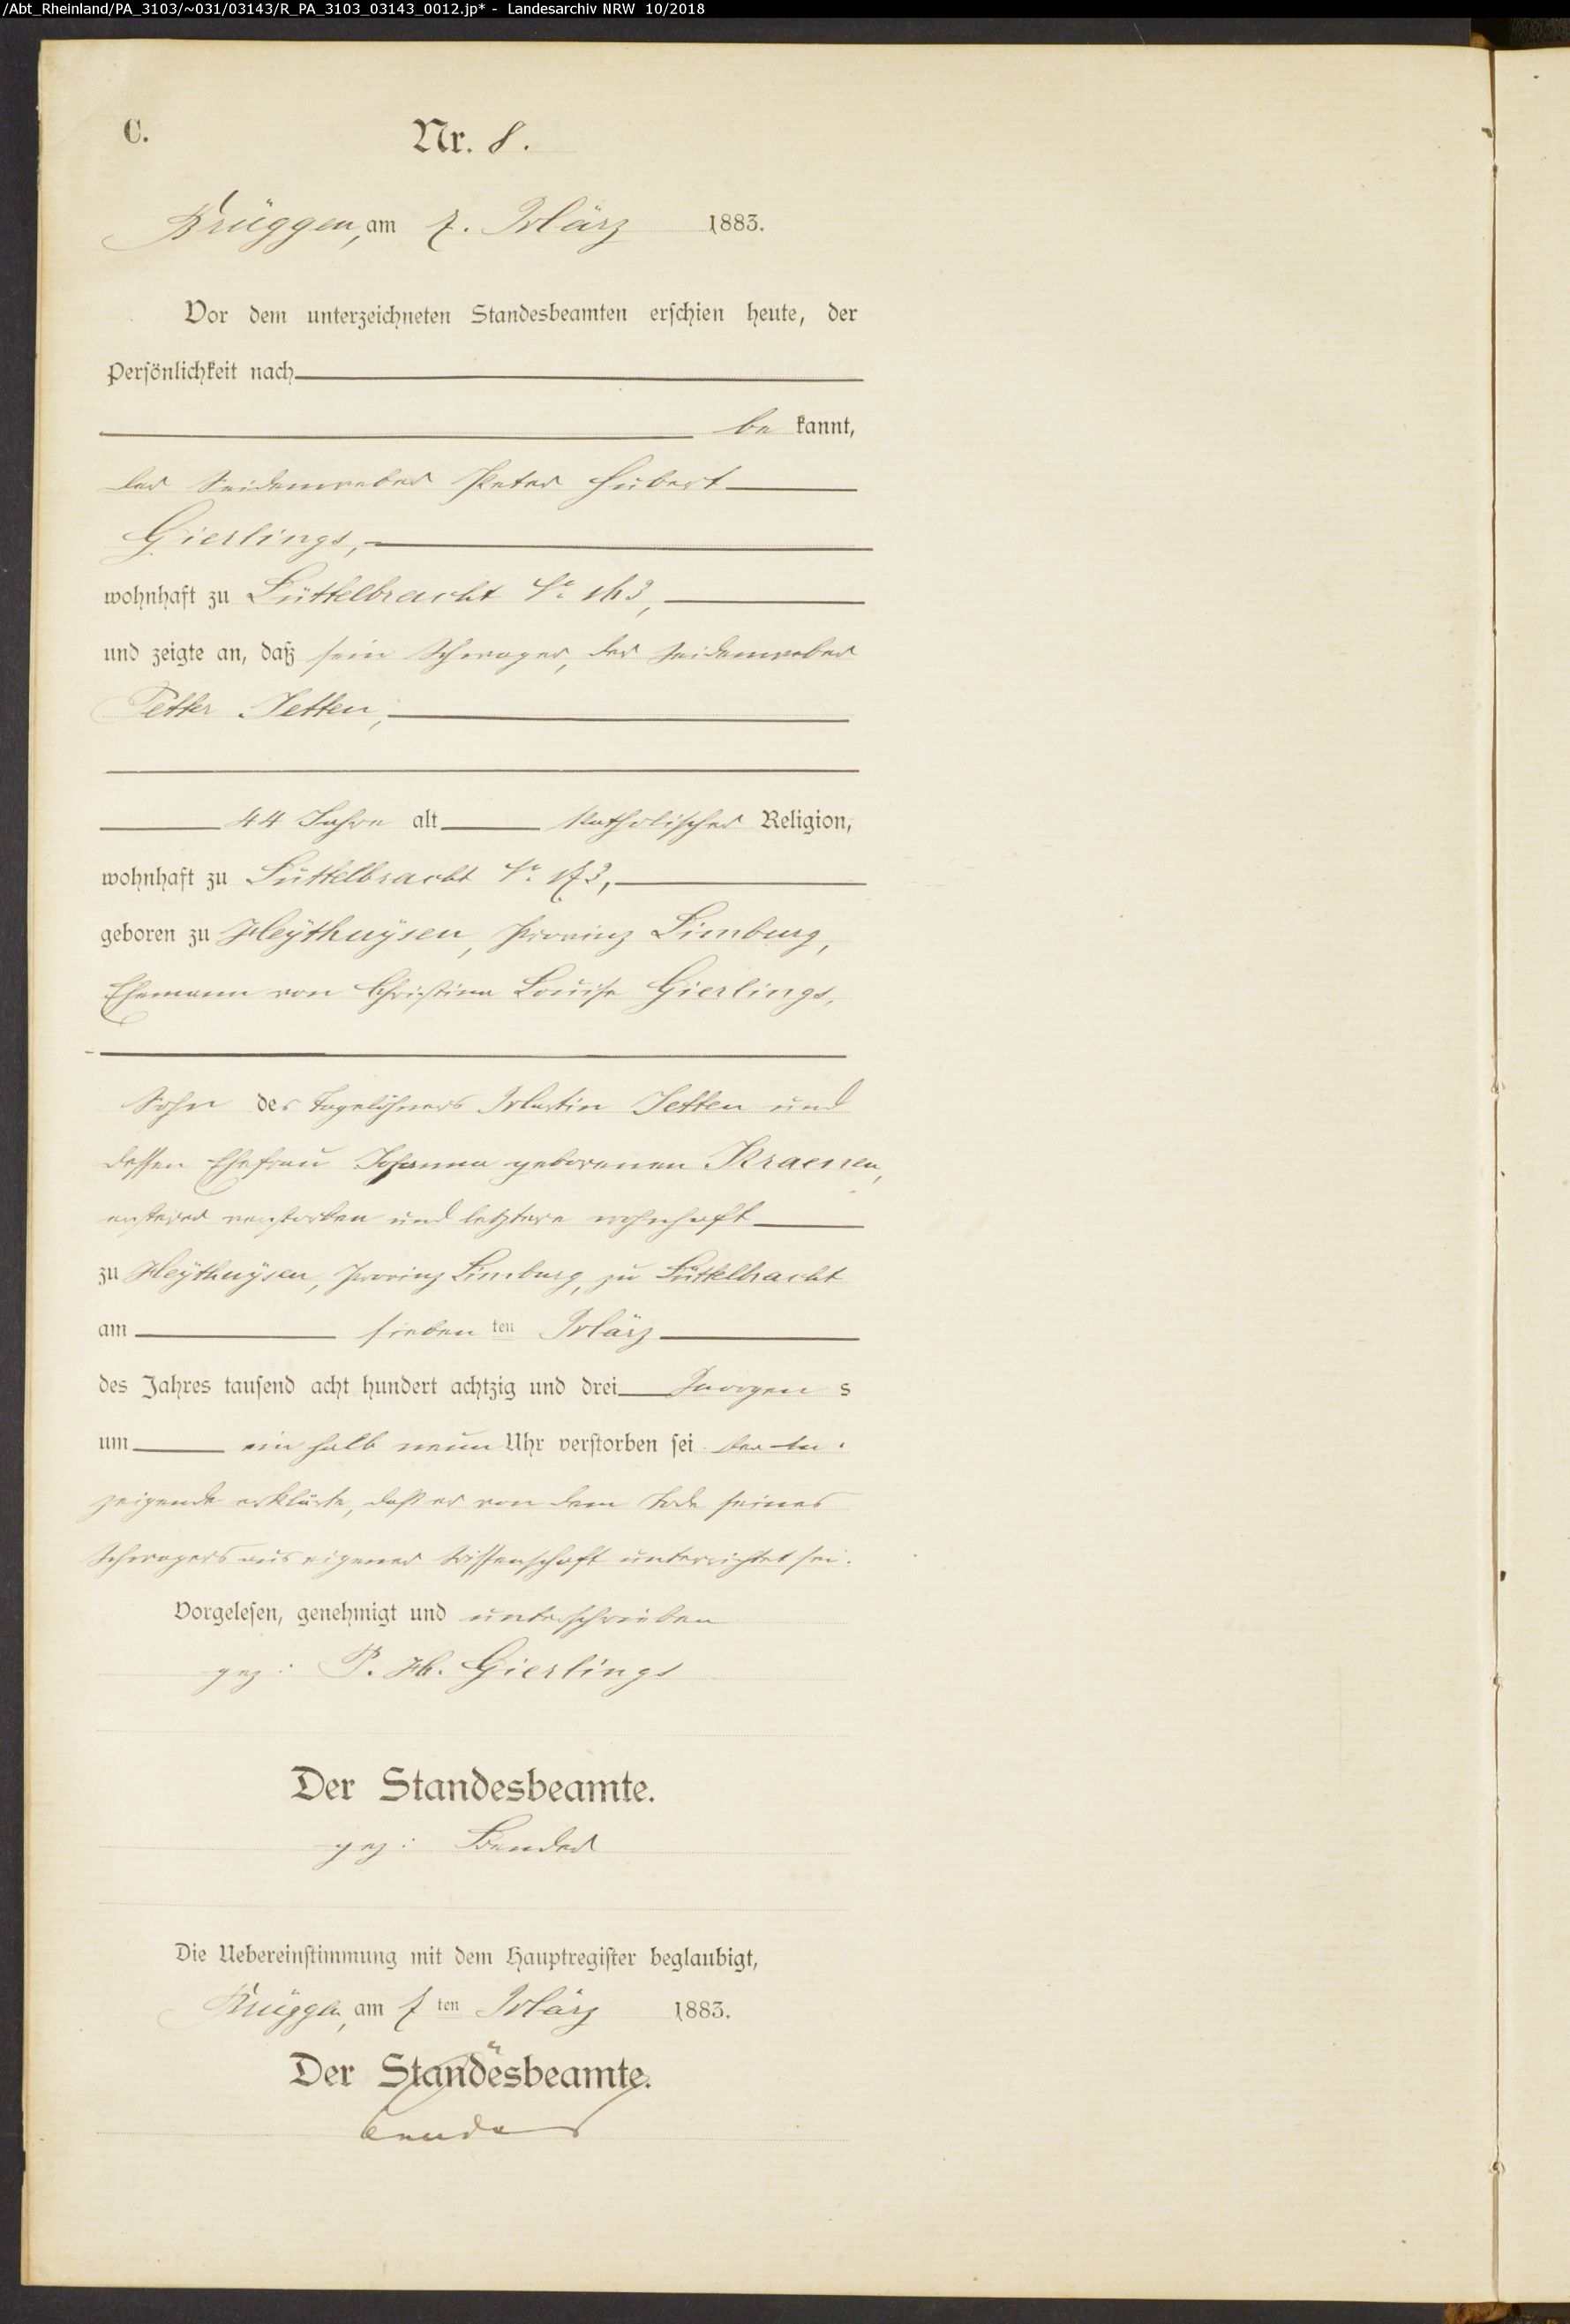 /Abt_Rheinland/PA_3103/~031/03143/R_PA_3103_03143_0012.jp* - Landesarchiv NRW 10/2018
C.
Nr. 8.
Brüggen, am 7. März 1883.
Vor dem unterzeichneten Standesbeamten erschien heute, der
Persönlichkeit nach
be kannt,
der Seidenweber Peter Hubert
Gierlings,
wohnhaft zu Lüttelbracht
und zeigte an, daß sein Schwager, der Seidenweber
Petter Jetten,
44 Jahre alt katholischer Religion,
wohnhaft zu Lüttelbracht No 173,
geboren zu Heÿthuÿsen, Provinz Limburg,
Ehemann von Christina Louise Gierlings,
Sohn des Tagelöhners Martin Jetten und
dessen Ehefrau Johanna geborenen Kraenen,
ersterer verstorben und letztere wohnhaft
zu Heÿthuÿsen, Provinz Limburg, zu Lüttelbracht
am sieben ten März
des Jahres tausend acht hundert achtzig und drei Morgen s
um ein halb neun Uhr verstorben sei Der An-
zeigende erklärte, daß er von dem Tode seines
Schwagers aus eigener Wissenschaft unterrichtet sei.
Vorgelesen, genehmigt und unterschrieben
gez: P. Hb. Gierlings
Der Standesbeamte.
gez: Bender
Die Uebereinstimmung mit dem Hauptregister beglaubigt,
Brüggen, am 7 ten März 1883.
Der Standesbeamte.
Bender